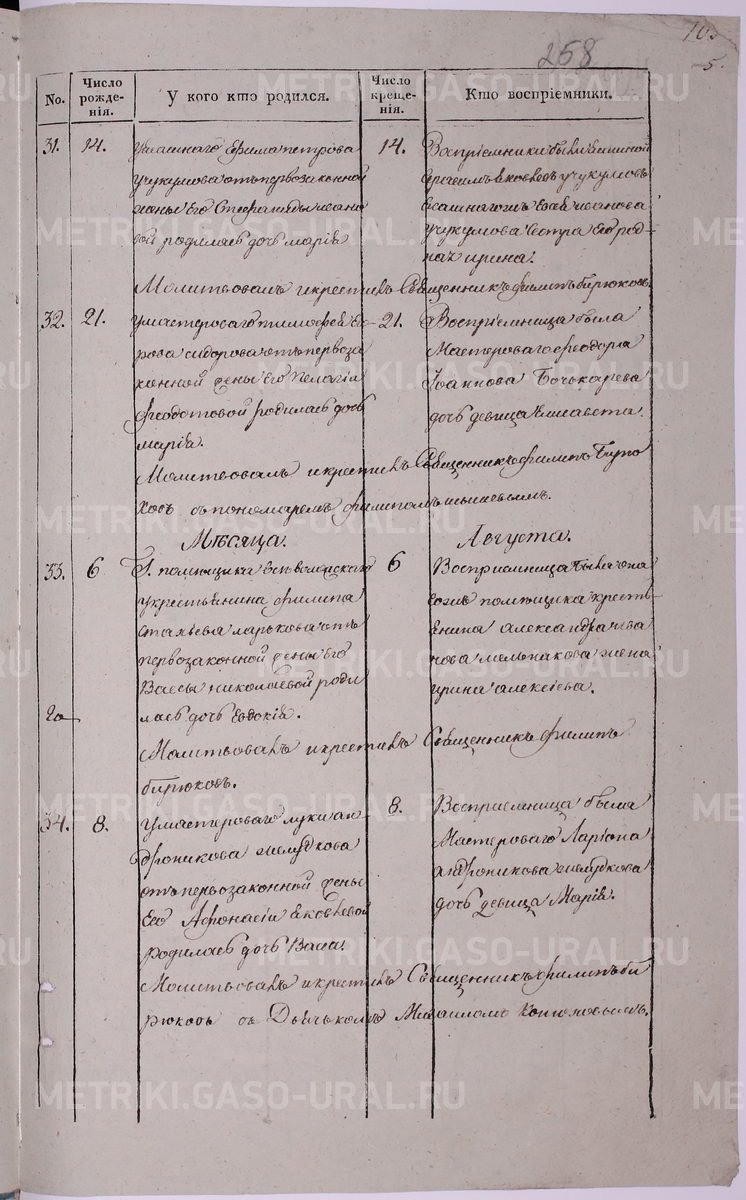 258
103
5.
No.
Число рожде-нія.
У кого кто родился.
Число креще-нія.
Кто воспріемники.
31. 14.
у Ефима петрова
учукумова отъ первозаконной
жены его Стефаниды ивано
вой родилась дочь марія
14.
Воспріемники были
учукумовъ
ивanова
учукумова сестра его род-
ная ирина.
Молитвовалъ и крестилъ Священникъ филипъ бирюковъ.
32. 21.
у мастероваго тимофея его-
рова сидорова отъ первоза
конной жены его пелагіи
феодотовой родилась дочь
марія.
21.
Воспріемница была
Мастероваго феодора
Іоаннова Бочькарева
дочь девица елисавета.
Молитвовалъ и крестилъ Священникъ филипъ Бирю
ковъ съ пономаремъ филипомъ
Мѣсяца. Августа.
33. 6
Г. помѣщика
у крестьянина филипа
ларькова отъ
первозаконной жены его
Васы николаевой роди
лась дочь евдокія.
6
Восприемница была
помѣщика кресть-
янина александра ива
нова мельникова жена
ирина алексіева.
Молитвовалъ и крестилъ Священникъ филипъ
бирюковъ.
34. 8.
у мастероваго луки ан-
дроникова желудкова
отъ первозаконной жены
Его Афонасіи яковлевой
родилась дочь Васа.
8.
Восприемница была
Мастероваго Ларіона
андроникова желудкова
дочь девица Марія.
Молитвовалъ и крестилъ Священникъ филипъ би
рюковъ съ Дьячькомъ Михаиломъ
METRIKI.GASO-URAL.RU